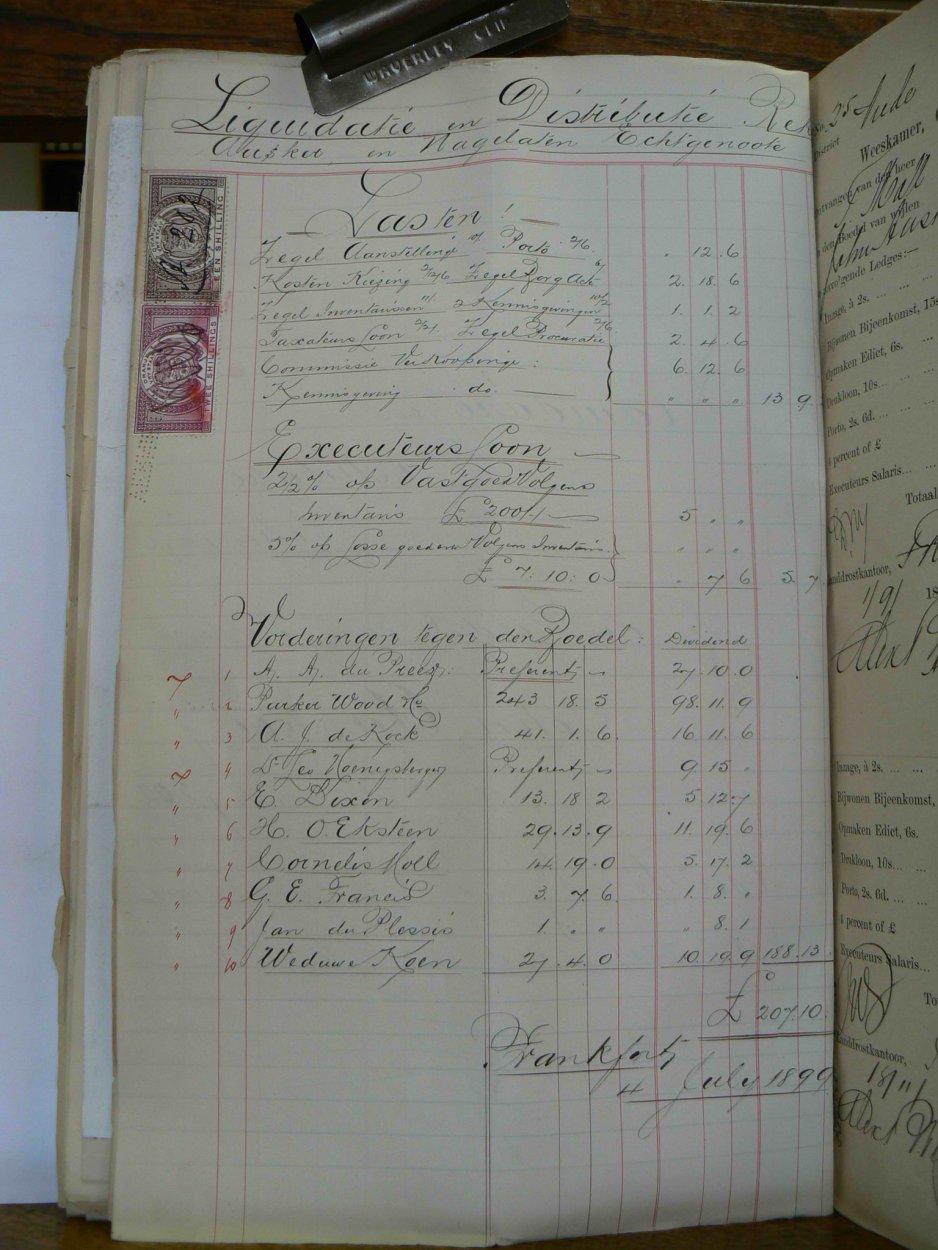 WAVERLEY CLIP
Liquidatie en Distributie Rek
en Nagelaten Echtgenoote
EEN SHILLING
TWEE SHILLINGS
Lasten!
Zegel Aanstelling 10/ Porto 2/6 " 12. 6
Kosten Kiezing Zegel Borg Acte 2. 18. 6
Zegel Inventarissen 11/ 2 Kennisgevingen 1. 1. 2
Taxateurs Loon Zegel Procuratie 2. 4. 6
Commissie Verkoopinge : 6. 12. 6
Kennisgeving do. " " " 13 9
Executeurs Loon
2 1/2 % op Vastgoed Volgens
Inventaris £200/-/- 5 " "
5% op Losse goederen Volgens Inventaris " " "
£7: 10: 0 " 7 6 5. 7
Vorderingen tegen den Boedel: Dividend
1 A. A. du Preez: Preferent 27. 10. 0
" 2 Parker Wood & Co 243 18. 5 98. 11. 9
" 3 A. J. de Kock 41. 1. 6. 16 11. 6
4 Dr Leo Hoenigsberger Preferent 9. 15 "
" 5 E. Dixon 13. 18 2 5 12. 7
" 6 H. O. Eksteen 29. 13. 9 11. 19. 6
" 7 Cornelis Moll 14. 19. 0 5. 17. 2
" 8 G. E. Francis 3. 7. 6. 1. 8. "
" 9 Jan du Plessis 1. " " " 8. 1
" 10 Weduwe Koen 27. 4. 0 10. 19. 9 188. 13.
£ 207. 10.
Frankfort
4 July 1899
No. 25
District
Weeskamer,
Ontvangen van den heer
den Boedel van wijlen
volgende Ledges:—
Inzage, à 2s. ... ...
Bijwonen Bijeenkomst, 15s
Opmaken Edict, 6s.
Drukloon, 10s...
Porto, 2s. 6d. ...
4 percent of £
Executeurs Salaris... ...
Totaal
Landdrostkantoor,
1/9/ 18
Inzage, à 2s. ... ...
Bijwonen Bijeenkomst,
Opmaken Edict, 6s.
Drukloon, 10s...
Porto, 2s. 6d. ...
4 percent of £
Executeurs Salaris...
To
Landdrostkantoor,